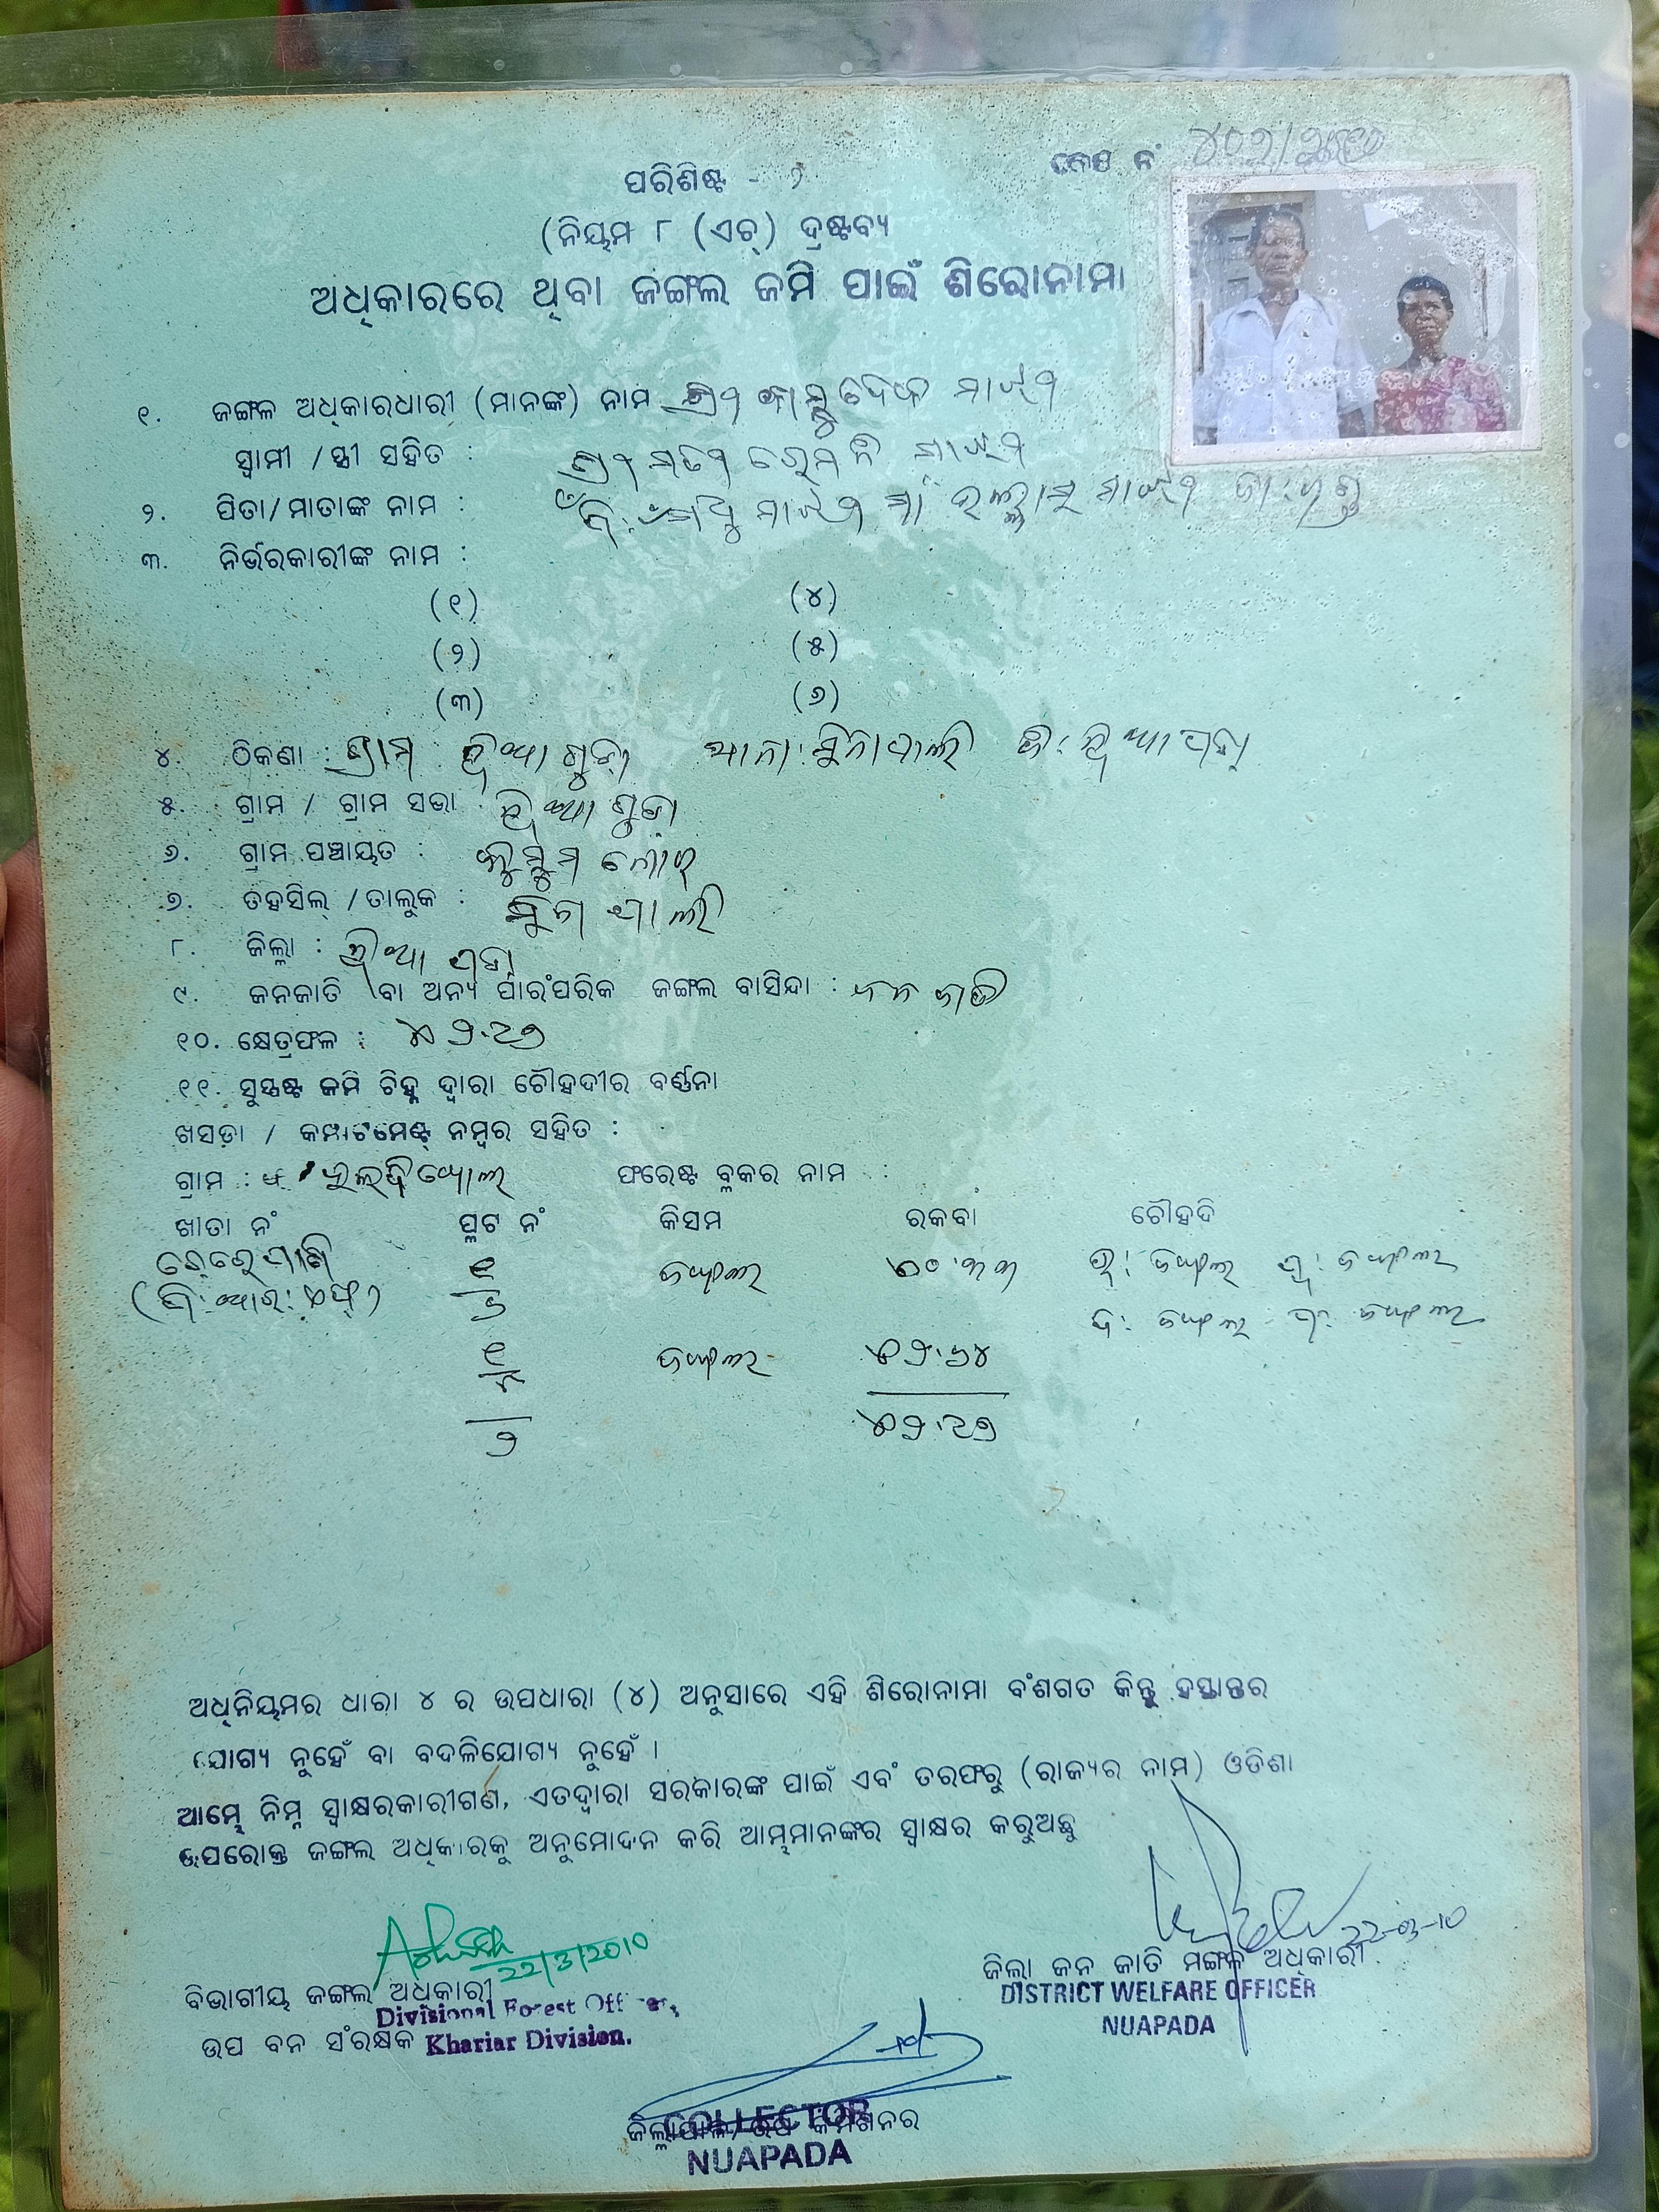 ପରିଶିଷ୍ଟ - ୨
କେଶ ନଂ
(ନିୟମ ୮ (ଏଚ୍) ଦ୍ରଷ୍ଟବ୍ୟ
ଅଧିକାରରେ ଥିବା ଜଙ୍ଗଲ ଜମି ପାଇଁ ଶିରୋନାମା
୧. ଜଙ୍ଗଲ ଅଧିକାରଧାରୀ (ମାନଙ୍କ) ନାମ ଶ୍ରୀ ମାଝୀ
ସ୍ୱାମୀ / ସ୍ତ୍ରୀ ସହିତ : ଶ୍ରୀମତୀ ମାଝୀ
୨. ପିତା/ମାତାଙ୍କ ନାମ : ମାଝୀ ମାଝୀ
୩. ନିର୍ଭରକାରୀଙ୍କ ନାମ :
(୧) (୪)
(୨) (୫)
(୩) (୬)
୪. ଠିକଣା : ଗ୍ରାମ ନୂଆଗୁଡା ଥାନା: ସିନାପାଲି ଜି: ନୂଆପଡା
୫. ଗ୍ରାମ / ଗ୍ରାମ ସଭା : ନୂଆଗୁଡା
୬. ଗ୍ରାମ ପଞ୍ଚାୟତ :
୭. ତହସିଲ୍ / ତାଲୁକ : ସିନାପାଲି
୮. ଜିଲ୍ଲା : ନୂଆପଡା
୯. ଜନଜାତି ବା ଅନ୍ୟ ପାରଂପରିକ ଜଙ୍ଗଲ ବାସିନ୍ଦା : ଜନଜାତି
୧୦. କ୍ଷେତ୍ରଫଳ : ଏ ୨.୯୭
୧୧. ସୁସ୍ପଷ୍ଟ ଜମି ଚିହ୍ନ ଦ୍ୱାରା ଚୌହଦୀର ବର୍ଣ୍ଣନା
ଖସଡ଼ା / କମ୍ପାଟମେଣ୍ଟ୍ ନମ୍ବର ସହିତ :
ଗ୍ରାମ : ଫରେଷ୍ଟ ବ୍ଲକର ନାମ :
ଖାତା ନଂ ପ୍ଲଟ ନଂ କିସମ ରକବା ଚୌହଦି
ଜଙ୍ଗଲ ଏ୦.୩୩ ଉ: ଜଙ୍ଗଲ ପୂ: ଜଙ୍ଗଲ
ଦ: ଜଙ୍ଗଲ ପ: ଜଙ୍ଗଲ
ଜଙ୍ଗଲ ଏ୨.୬୪
୨ ଏ୨.୯୭
ଅଧିନିୟମର ଧାରା ୪ ର ଉପଧାରା (୪) ଅନୁସାରେ ଏହି ଶିରୋନାମା ବଂଶଗତ କିନ୍ତୁ ହସ୍ତାନ୍ତର
ଯୋଗ୍ୟ ନୁହେଁ ବା ବଦଳିଯୋଗ୍ୟ ନୁହେଁ ।
ଆମ୍ଭେ ନିମ୍ନ ସ୍ୱାକ୍ଷରକାରୀଗଣ, ଏତଦ୍ୱାରା ସରକାରଙ୍କ ପାଇଁ ଏବଂ ତରଫରୁ (ରାଜ୍ୟର ନାମ) ଓଡିଶା
ଉପରୋକ୍ତ ଜଙ୍ଗଲ ଅଧିକାରକୁ ଅନୁମୋଦନ କରି ଆମ୍ଭମାନଙ୍କର ସ୍ୱାକ୍ଷର କରୁଅଛୁ
22/3/2010
22-03-10
ବିଭାଗୀୟ ଜଙ୍ଗଲ ଅଧିକାରୀ
Divisional Forest Officer,
ଉପ ବନ ସଂରକ୍ଷକ
Khariar Division.
ଜିଲ୍ଲା ଜନ ଜାତି ମଙ୍ଗଳ ଅଧିକାରୀ
DISTRICT WELFARE OFFICER
NUAPADA
COLLECTOR
ଜିଲ୍ଲାପାଳ/ଉପ କମିଶନର
NUAPADA